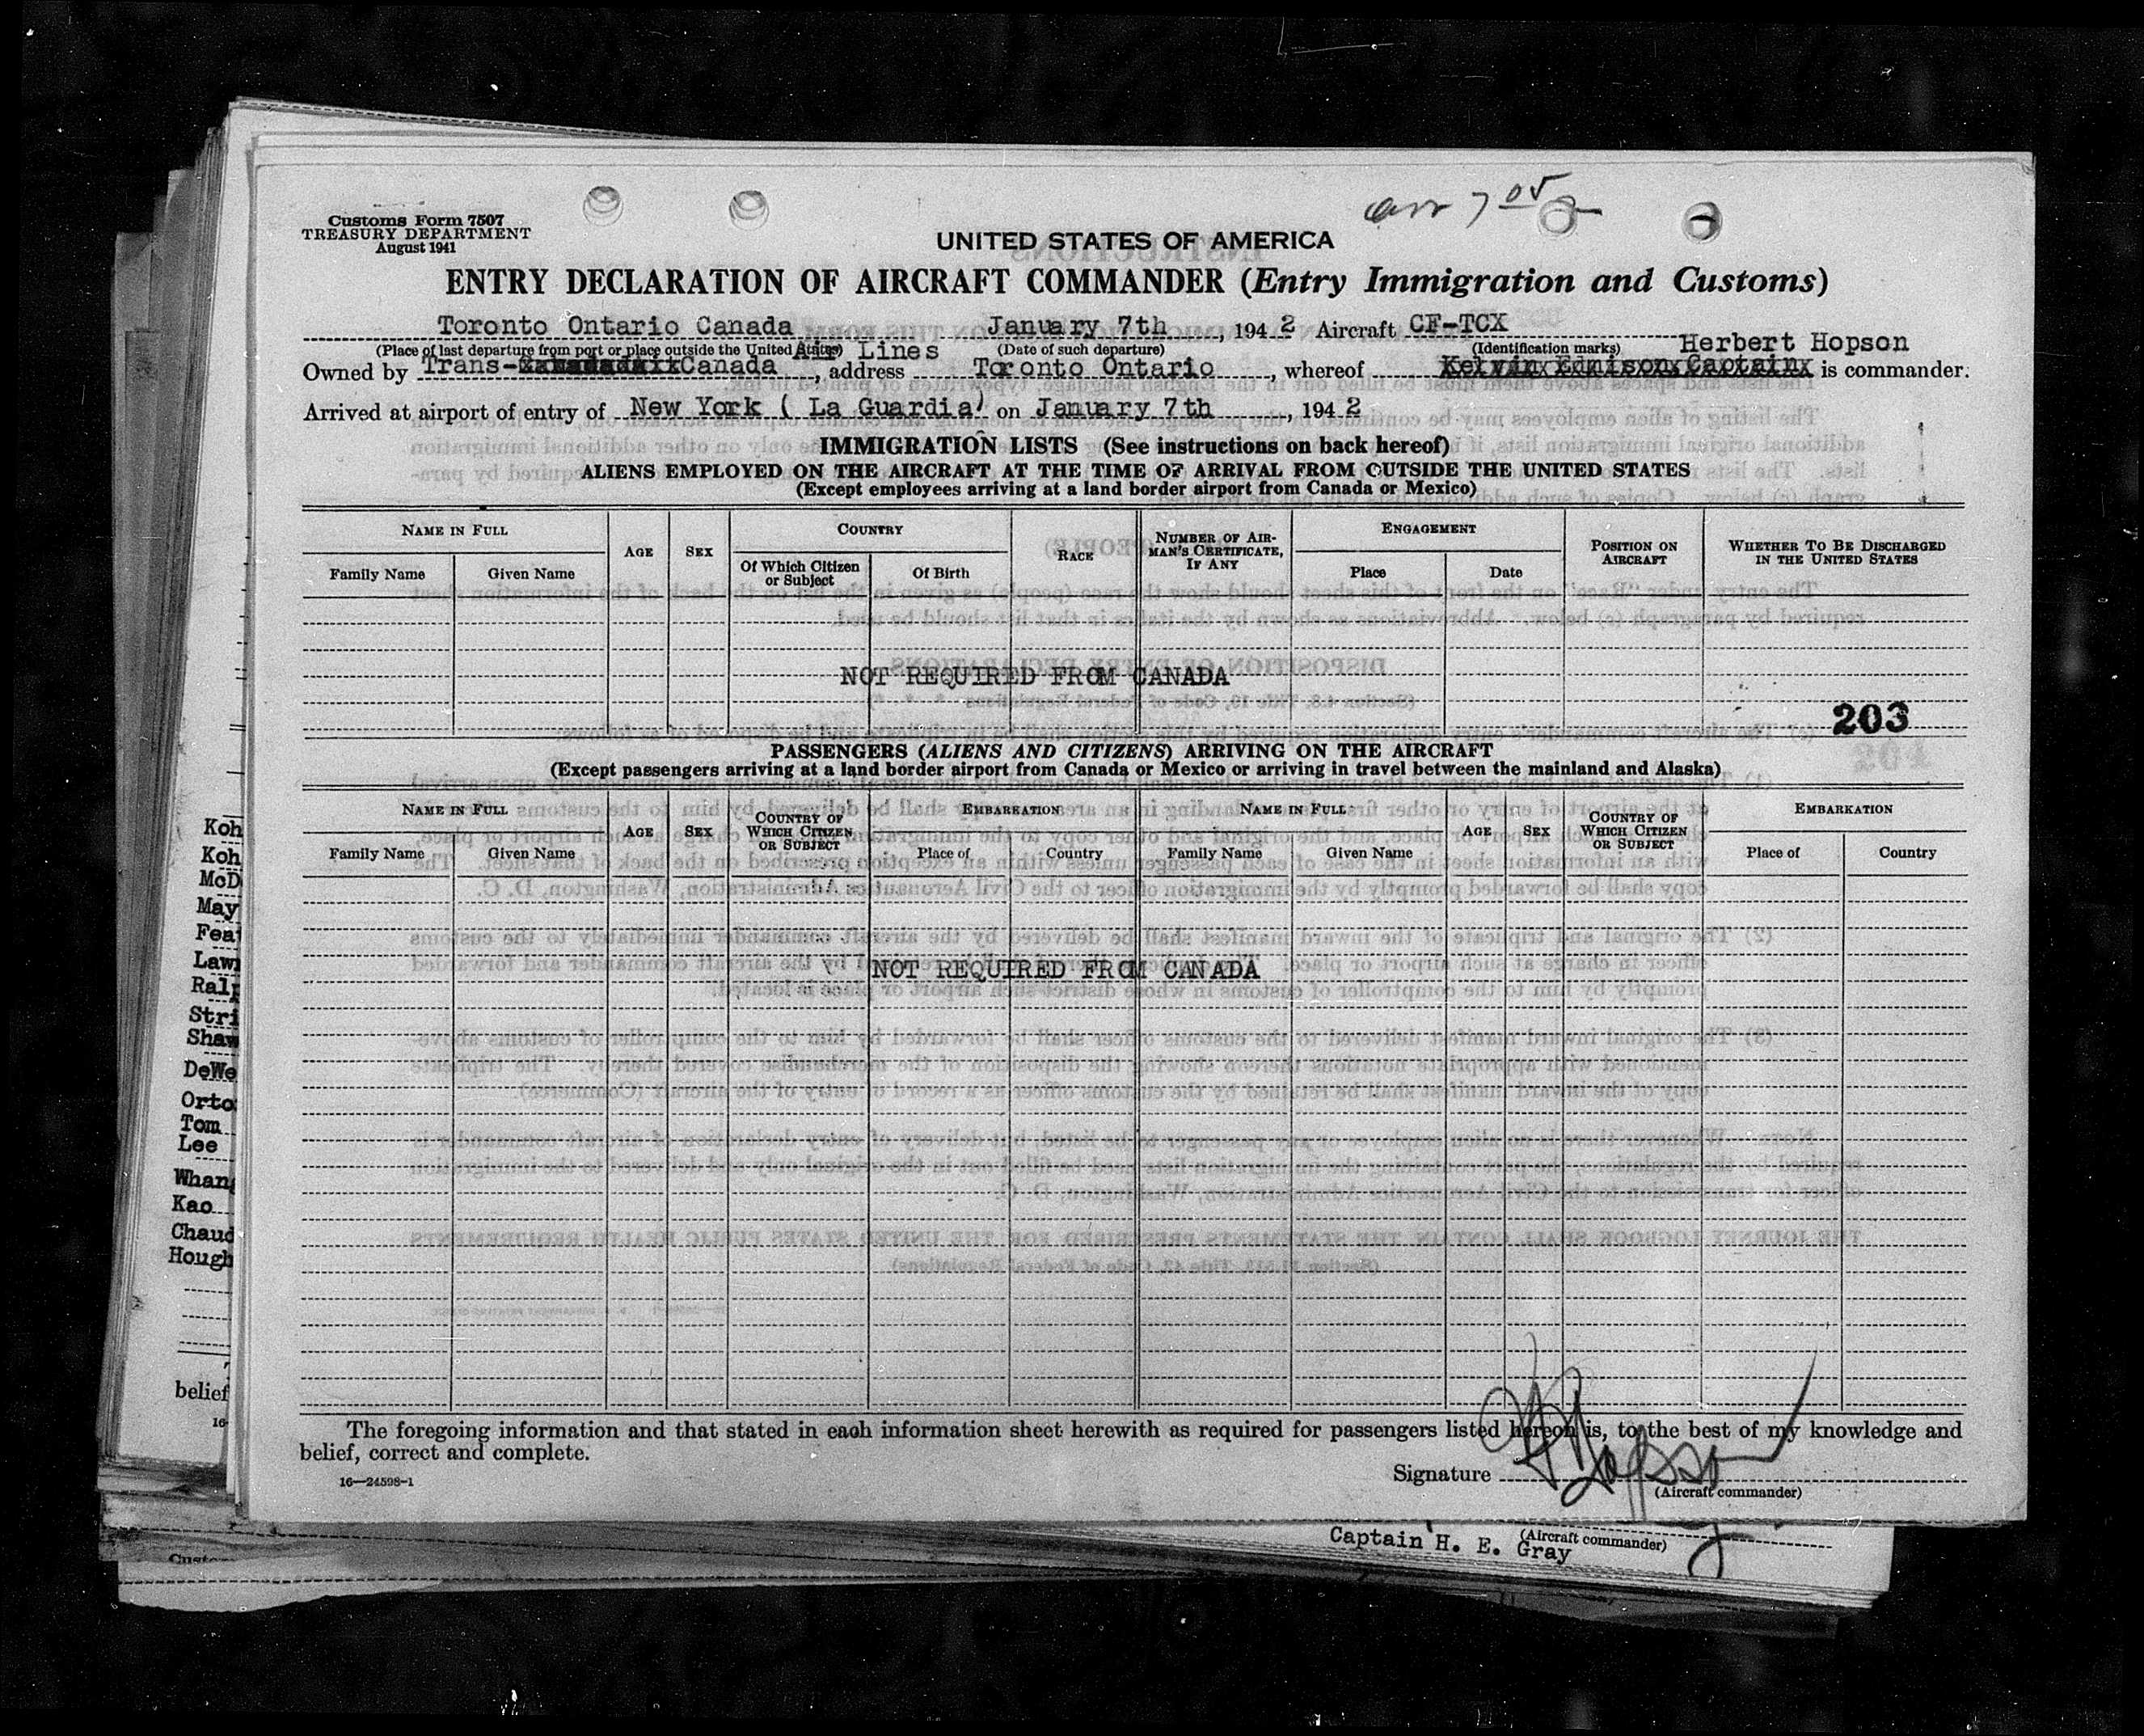 arr 7 05
Customs Form 7507
TREASURY DEPARTMENT
August 1941
UNITED STATES OF AMERICA
ENTRY DECLARATION OF AIRCRAFT COMMANDER (Entry Immigration and Customs)
Toronto Ontario Canada January 7th, 1942 Aircraft CF-TCX
(Place of last departure from port or place outside the United States) (Date of such departure) (Identification marks)
Air Lines Herbert Hopson
Owned by Trans-Canada, address Toronto Ontario, whereof Kelvin Edmison Captain is commander.
Arrived at airport of entry of New York ( La Guardia) on January 7th, 1942
IMMIGRATION LISTS (See instructions on back hereof)
ALIENS EMPLOYED ON THE AIRCRAFT AT THE TIME OF ARRIVAL FROM OUTSIDE THE UNITED STATES
(Except employees arriving at a land border airport from Canada or Mexico)
NAME IN FULL AGE SEX COUNTRY RACE NUMBER OF AIRMAN'S CERTIFICATE, IF ANY ENGAGEMENT POSITION ON AIRCRAFT WHETHER TO BE DISCHARGED IN THE UNITED STATES
Family Name Given Name Of Which Citizen or Subject Of Birth Place Date
NOT REQUIRED FROM CANADA
203
PASSENGERS (ALIENS AND CITIZENS) ARRIVING ON THE AIRCRAFT
(Except passengers arriving at a land border airport from Canada or Mexico or arriving in travel between the mainland and Alaska)
NAME IN FULL AGE SEX COUNTRY OF WHICH CITIZEN OR SUBJECT EMBARKATION NAME IN FULL AGE SEX COUNTRY OF WHICH CITIZEN OR SUBJECT EMBARKATION
Family Name Given Name Place of Country Family Name Given Name Place of Country
NOT REQUIRED FROM CANADA
The foregoing information and that stated in each information sheet herewith as required for passengers listed hereon is, to the best of my knowledge and
belief, correct and complete.
Signature H Hopson
(Aircraft commander)
16—24598-1
Koh
Koh
McD
May
Feat
Lawr
Ralp
Stri
Shaw
DeWe
Orto
Tom
Lee
Whang
Kao
Chaud
Hough
belief
16-
Custo
(Aircraft commander)
Captain H. E. Gray